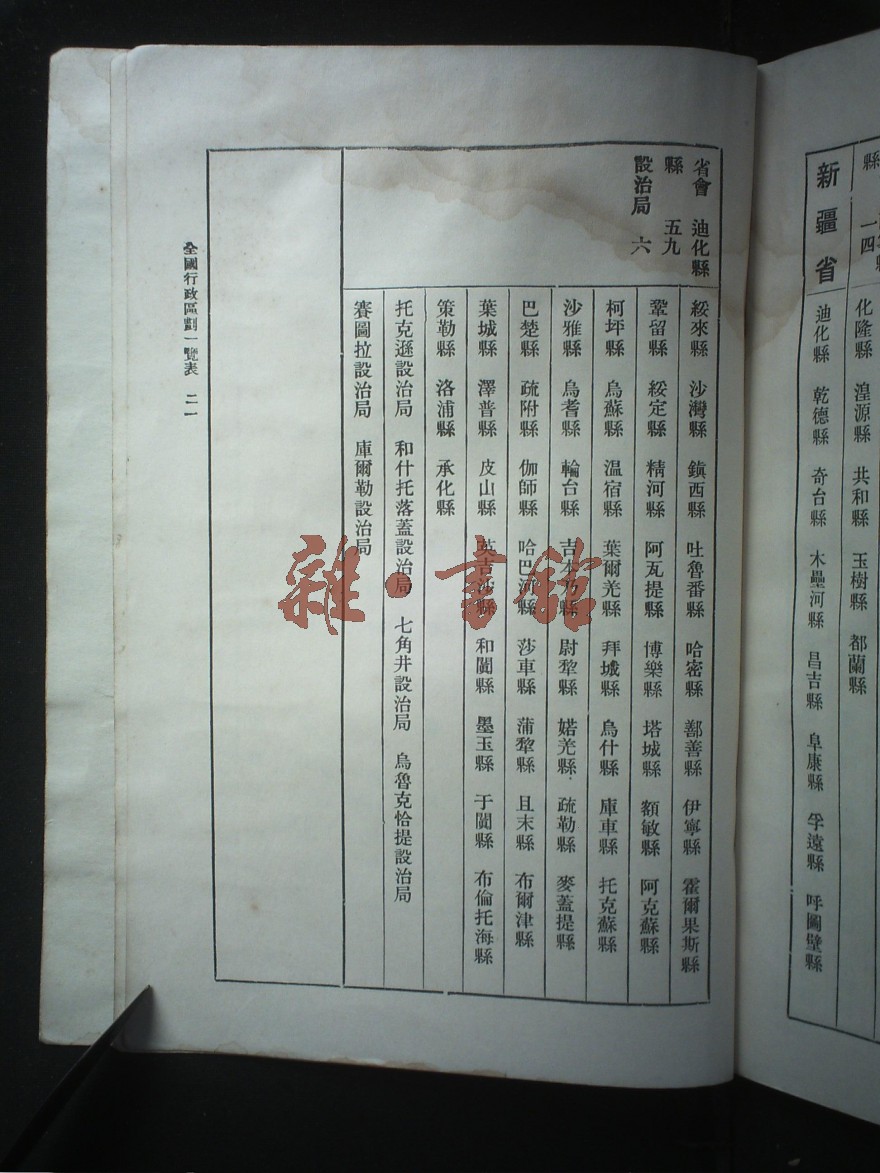 縣 一四
化隆縣 湟源縣 共和縣 玉樹縣 都蘭縣
新疆省
迪化縣 乾德縣 奇台縣 木壘河縣 昌吉縣 阜康縣 孚遠縣 呼圖壁縣
省會 迪化縣
縣 五九
設治局 六
綏來縣 沙灣縣 鎭西縣 吐魯番縣 哈密縣 鄯善縣 伊寧縣 霍爾果斯縣
鞏留縣 綏定縣 精河縣 阿瓦提縣 博樂縣 塔城縣 額敏縣 阿克蘇縣
柯坪縣 烏蘇縣 温宿縣 葉爾羌縣 拜城縣 烏什縣 庫車縣 托克蘇縣
沙雅縣 烏耆縣 輪台縣 吉木乃縣 尉犂縣 婼羌縣 疏勒縣 麥蓋提縣
巴楚縣 疏附縣 伽師縣 哈巴河縣 莎車縣 蒲犂縣 且末縣 布爾津縣
葉城縣 澤普縣 皮山縣 英吉沙縣 和闐縣 墨玉縣 于闐縣 布倫托海縣
策勒縣 洛浦縣 承化縣
托克遜設治局 和什托落蓋設治局 七角井設治局 烏魯克恰提設治局
賽圖拉設治局 庫爾勒設治局
全國行政區劃一覽表 二一
雜·書館